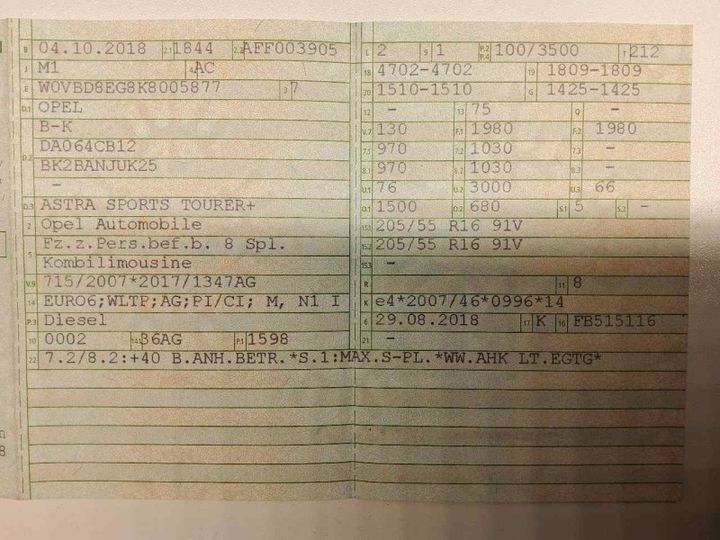 B 04.10.2018 2.1 1844 2.2 AFF003905
J M1 4 AC
E W0VBD8EG8K8005877 3 7
D.1 OPEL
B-K
D.2 DA064CB12
BK2BANJUK25
-
D.3 ASTRA SPORTS TOURER+
2 Opel Automobile
5 Fz.z.Pers.bef.b. 8 Spl.
Kombilimousine
V.9 715/2007*2017/1347AG
14 EURO6;WLTP;AG;PI/CI; M, N1 I
P.3 Diesel
10 0002 14.1 36AG P.1 1598
22 7.2/8.2:+40 B.ANH.BETR.*S.1:MAX.S-PL.*WW.AHK LT.EGTG*
L 2 9 1 P.2 P.4 100/3500 T 212
18 4702-4702 19 1809-1809
20 1510-1510 G 1425-1425
12 - 13 75 Q -
V.7 130 F.1 1980 F.2 1980
7.1 970 7.2 1030 7.3 -
8.1 970 8.2 1030 8.3 -
U.1 76 U.2 3000 U.3 66
O.1 1500 O.2 680 S.1 5 S.2 -
15.1 205/55 R16 91V
15.2 205/55 R16 91V
15.3 -
R 11 8
K e4*2007/46*0996*14
6 29.08.2018 17 K 16 FB515116
21 -